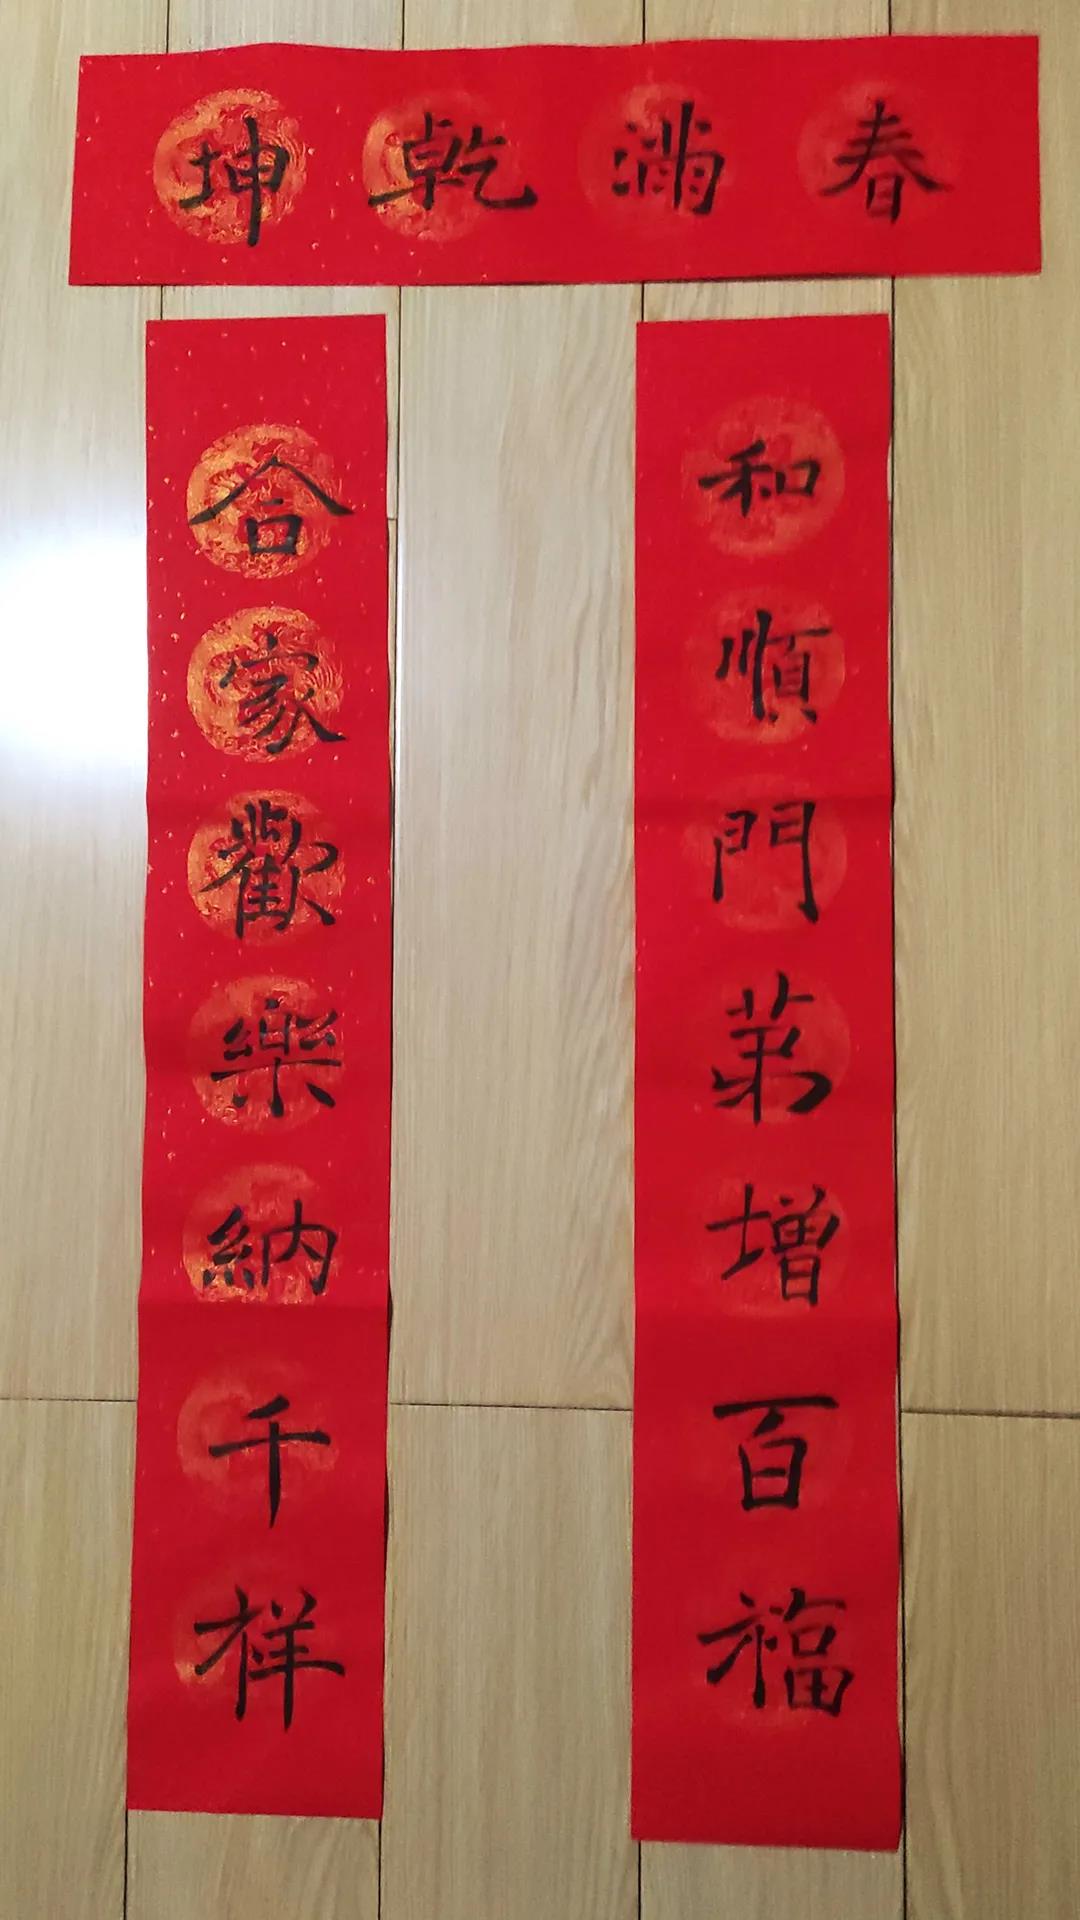 春滿乾坤
和順門苐增百福
合家歡樂納千祥